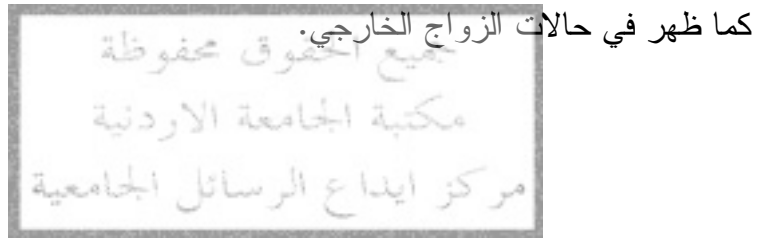 كما ظهر في حالات الزواج الخارجي.
جميع الحقوق محفوظة
مكتبة الجامعة الاردنية
مركز ايداع الرسائل الجامعية